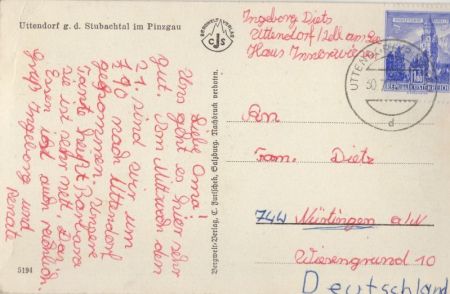 Uttendorf g. d. Stubachtal im Pinzgau
BERGWELT-VERLAG
CJS
Ingeborg Dietz
Uttendorf/Zell am See
Haus Innerwiesen
UTTENDORF
30.
d
REPUBLIK ÖSTERREICH
Liebe Oma!
Uns geht es hier sehr
gut. Am Mittwoch den
27. sind wir um
7 40 nach Uttendorf
gekommen. Unsere
Tante heißt Barbara
sie ist sehr nett. Das
Essen ist auch reichlich
Gruß Ingeborg und
Renate
Bergwelt-Verlag, C. Jurischek, Salzburg. Nachdruck verboten.
An
Fam. Dietz
744 Nürtingen a/N
Wiesengrund 10
Deutschland
5194